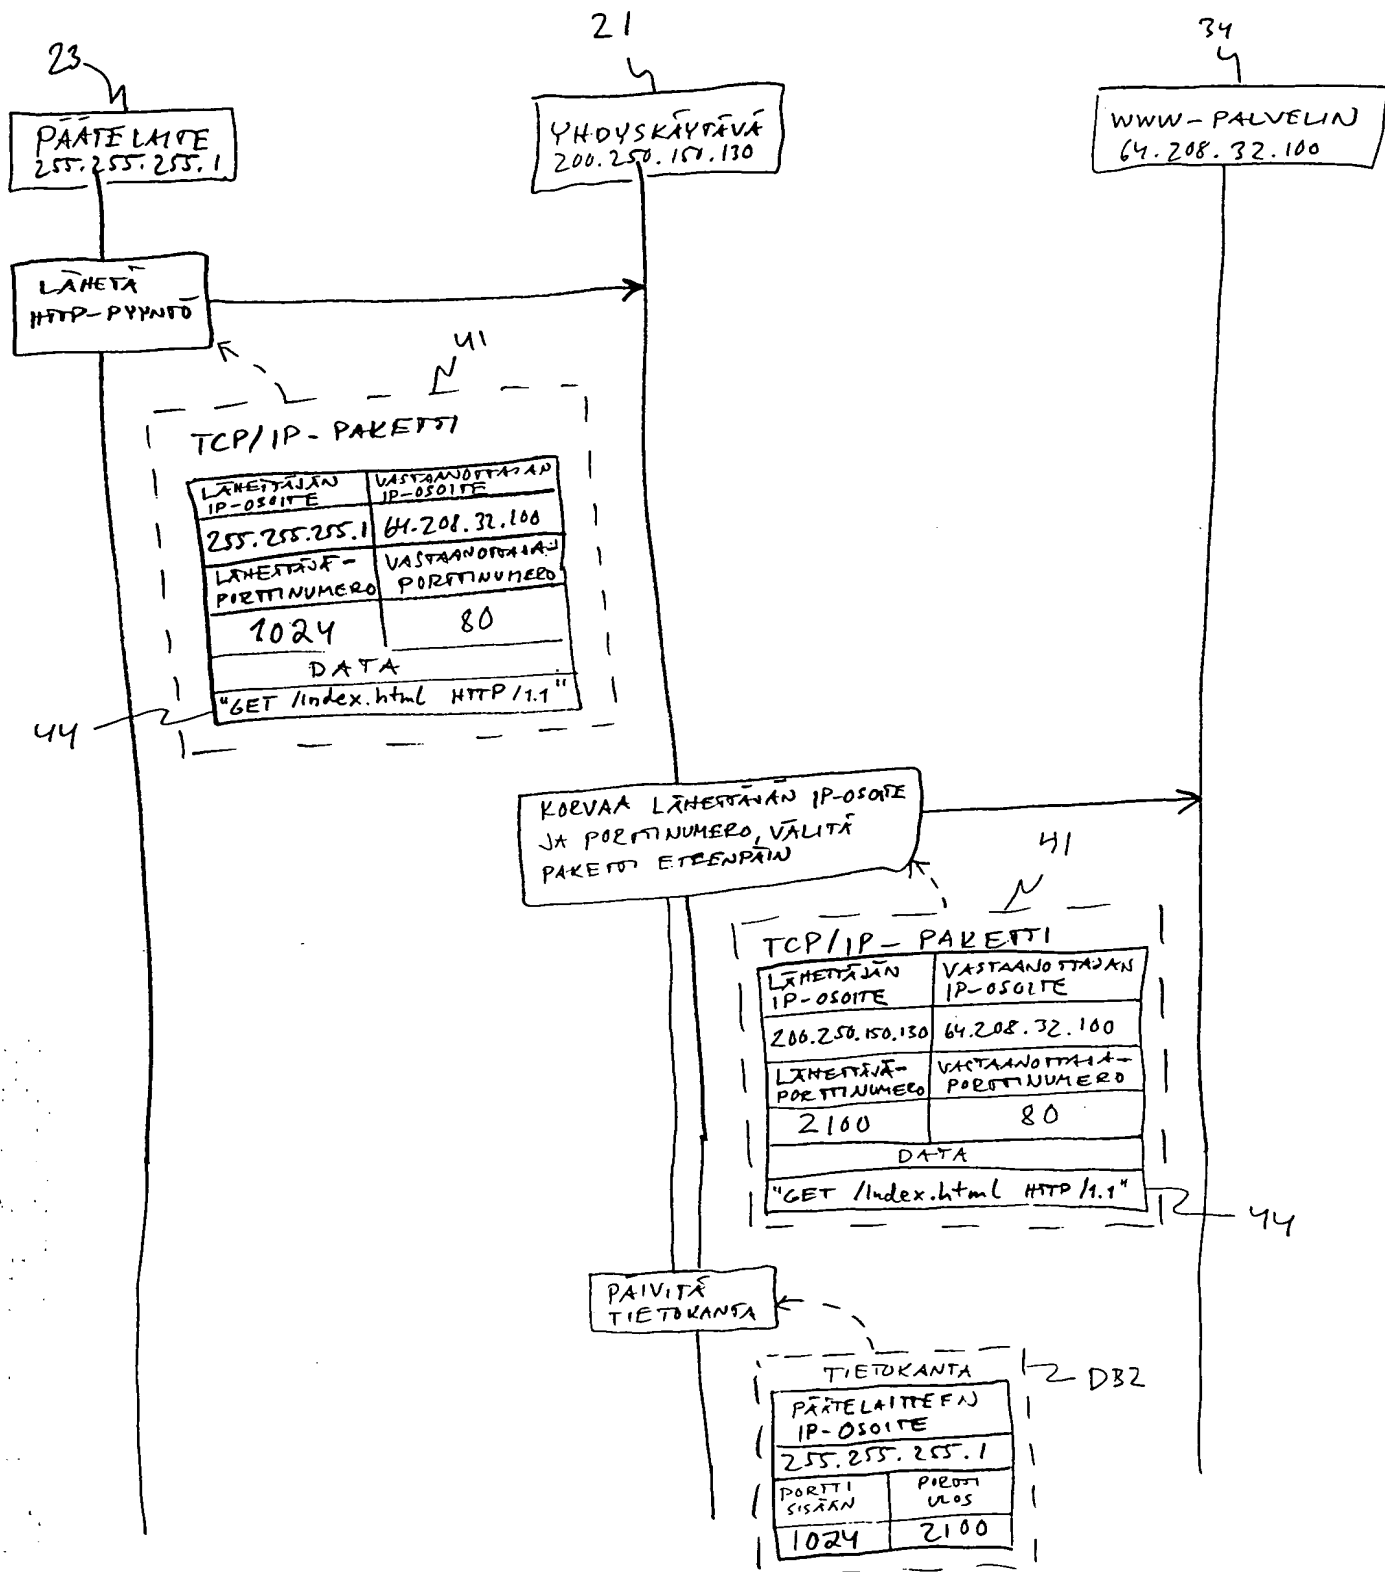 23
21
34
PÄÄTELAITE
255.255.255.1
YHDYSKÄYTÄVÄ
200.250.150.130
WWW-PALVELIN
64.208.32.100
LÄHETÄ
HTTP-PYYNTÖ
41
TCP/IP-PAKETTI
LÄHETTÄJÄN
IP-OSOITE
VASTAANOTTAJAN
IP-OSOITE
255.255.255.1
64.208.32.100
LÄHETTÄJÄ-
PORTTINUMERO
VASTAANOTTAJA-
PORTTINUMERO
1024
80
DATA
"GET /index.html HTTP/1.1"
44
KORVAA LÄHETTÄJÄN IP-OSOITE
JA PORTTINUMERO, VÄLITÄ
PAKETTI ETEENPÄIN
41
TCP/IP-PAKETTI
LÄHETTÄJÄN
IP-OSOITE
VASTAANOTTAJAN
IP-OSOITE
200.250.150.130
64.208.32.100
LÄHETTÄJÄ-
PORTTINUMERO
VASTAANOTTAJA-
PORTTINUMERO
2100
80
DATA
"GET /index.html HTTP/1.1"
44
PÄIVITÄ
TIETOKANTA
TIETOKANTA
DB2
PÄÄTELAITTEEN
IP-OSOITE
255.255.255.1
PORTTI
SISÄÄN
PORTTI
ULOS
1024
2100